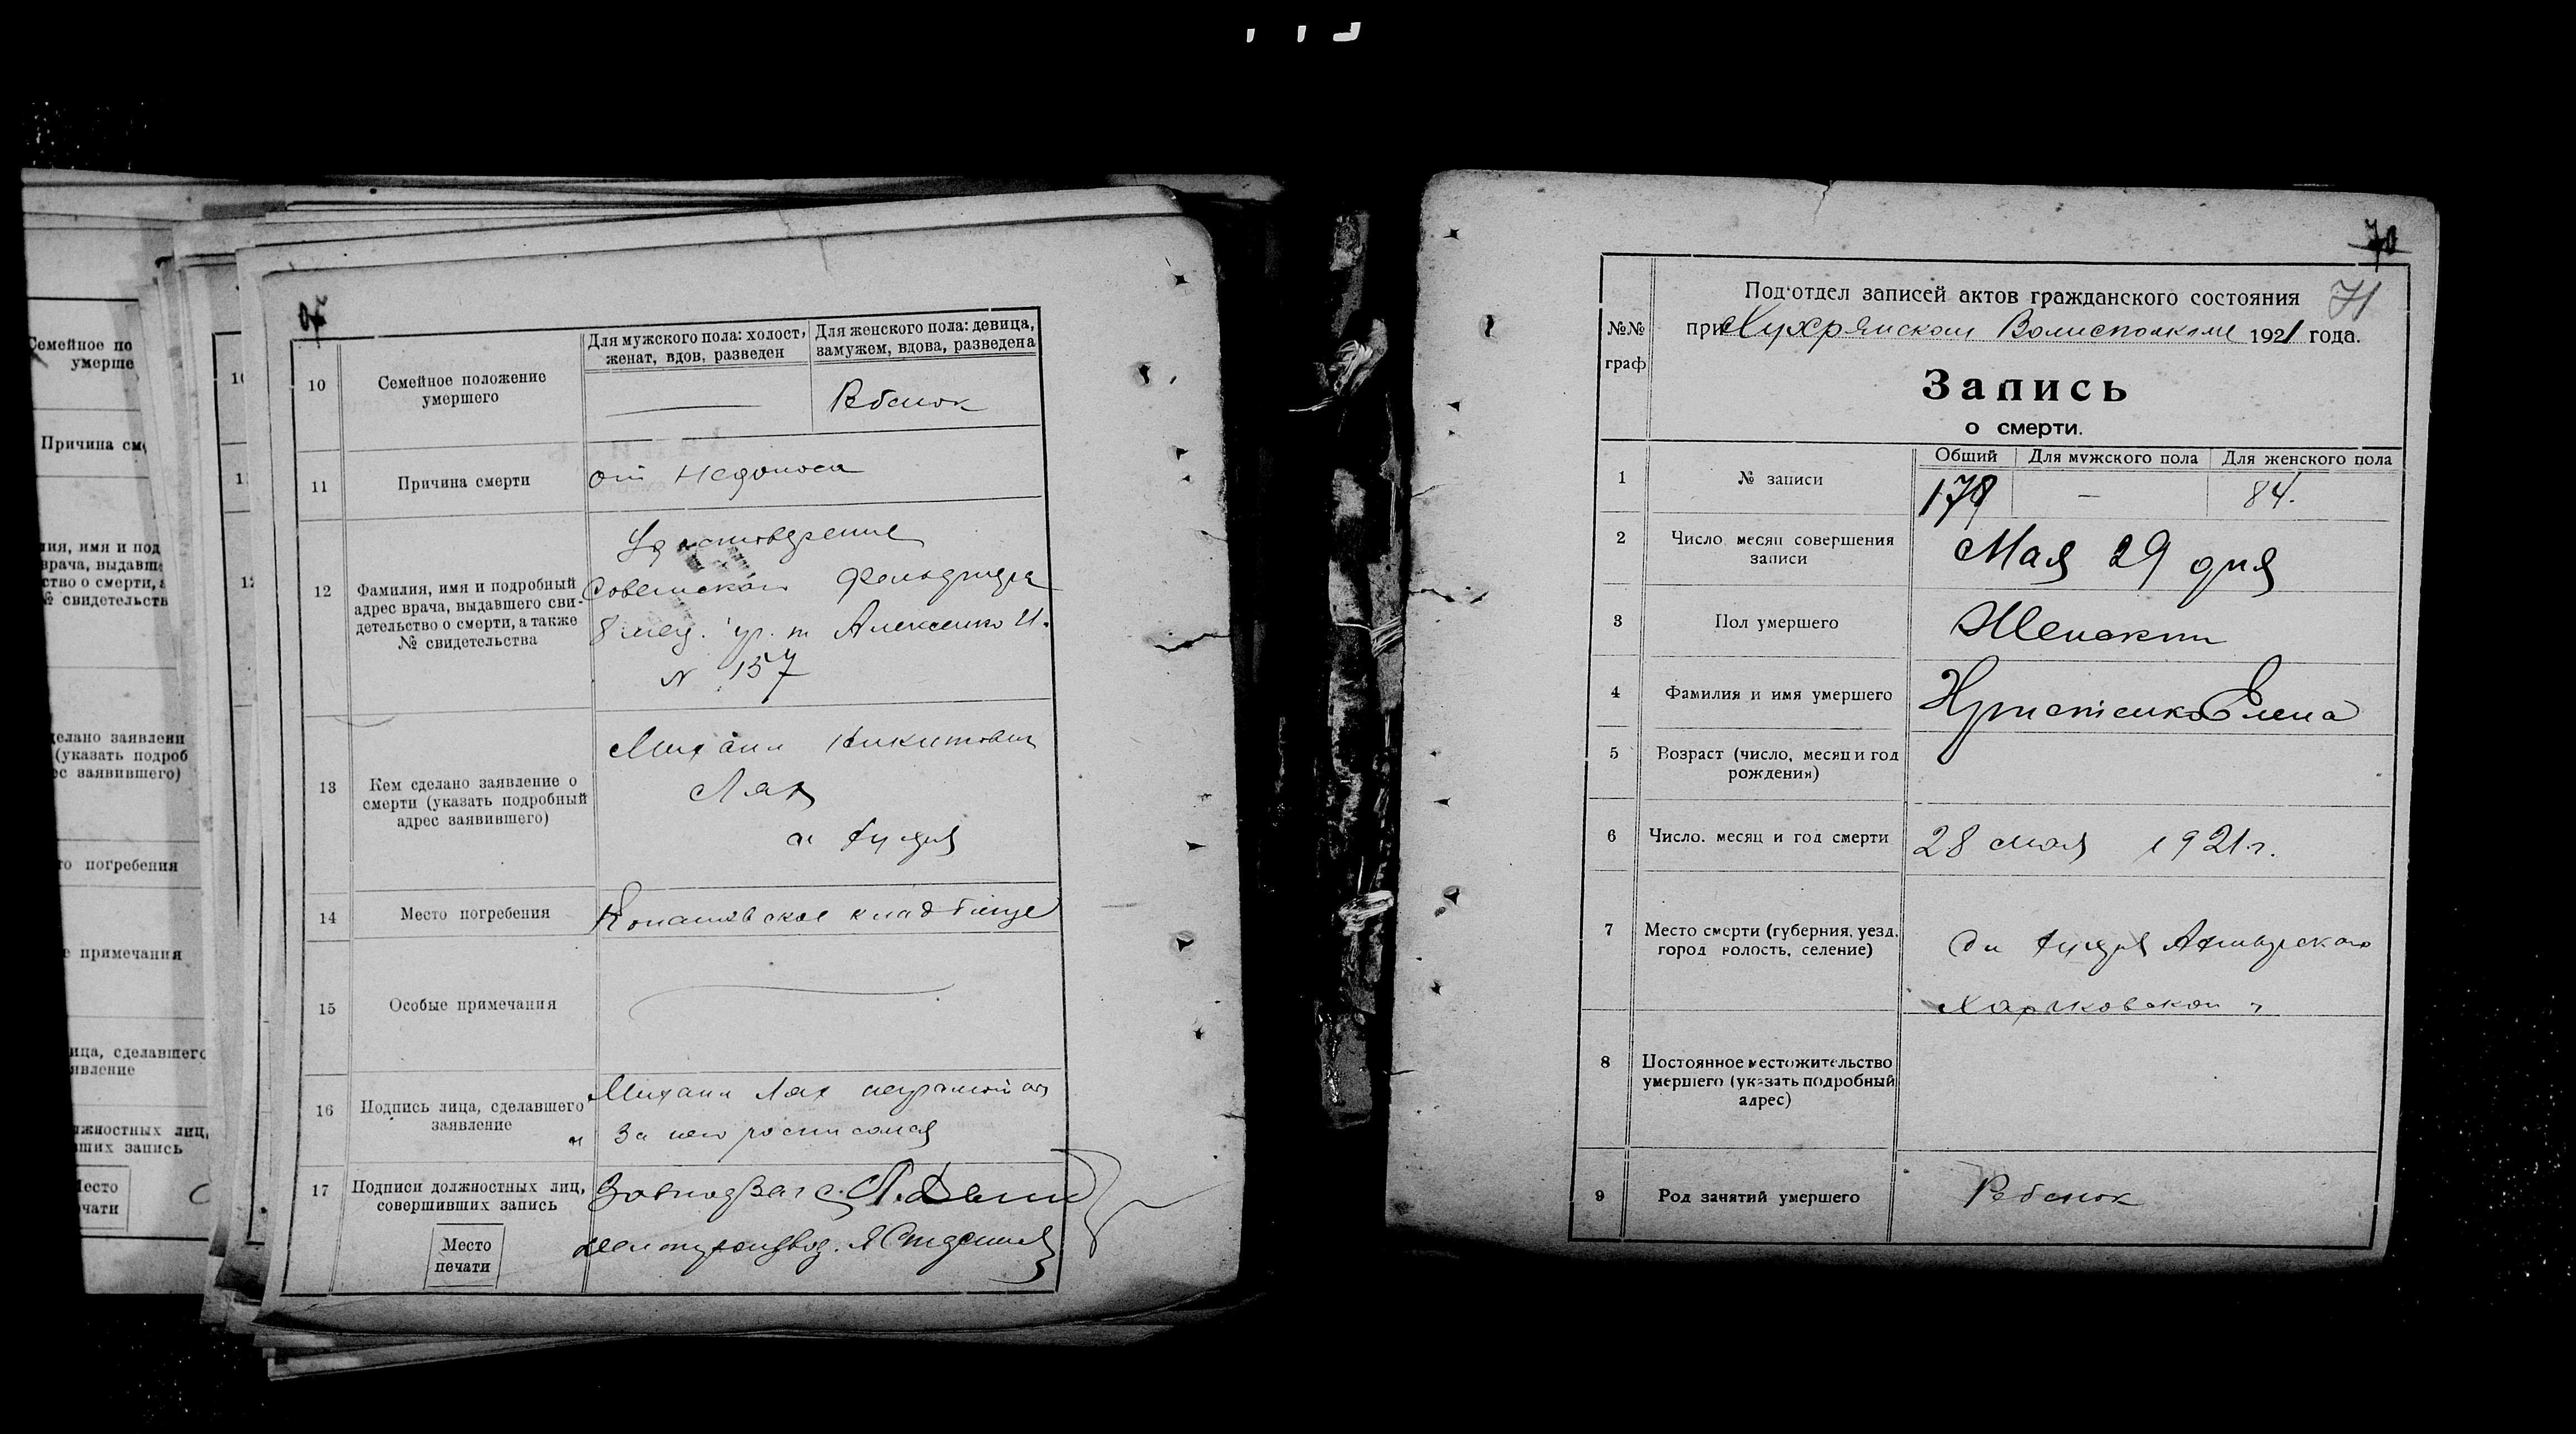 Семейное по
умерше
Причина см
ия, имя и под
врача, выдавше
ство о смерти, а
№ свидетельств
делано заявлени
(указать подроб
ес заявившего)
то погребения
е примечания
ица, сделавшего
явление
жностных лиц,
вших запись
Место
печати
10
Семейное положение
умершего
Для мужского пола: холост,
женат, вдов, разведен
Для женского пола: девица,
замужем, вдова, разведена
Ребенок
11
Причина смерти
от недоноса
12
Фамилия, имя и подробный
адрес врача, выдавшего сви-
детельство о смерти, а также
№ свидетельства
Удостоверение
Советской фельдшера
8 мед. Алексенко И.
N 157
13
Кем сделано заявление о
смерти (указать подробный
адрес заявившего)
Михаил Никитович
Лях
14
Место погребения
кладбище
15
Особые примечания
16
Подпись лица, сделавшего
заявление
Михаил Лях неграмотный
За него росписался
17
Подписи должностных лиц,
совершивших запись
Место
печати
70
71
№№
граф
Под‘отдел записей актов гражданского состояния
при Хухрянском Волисполкоме 1921 года.
Запись
о смерти.
1
№ записи
Общий
Для мужского пола
Для женского пола
178
—
84.
2
Число месяц совершения
записи
Мая 29 дня
3
Пол умершего
Женский
4
Фамилия и имя умершего
Христенко Елена
5
Возраст (число, месяц и год
рождения)
6
Число. месяц и год смерти
28 мая 1921 г.
7
Место смерти (губерния, уезд,
город волость, селение)
Ахтырского
Харьковской г
8
Постоянное местожительство
умершего (указать подробный
адрес)
9
Род занятий умершего
Ребенок